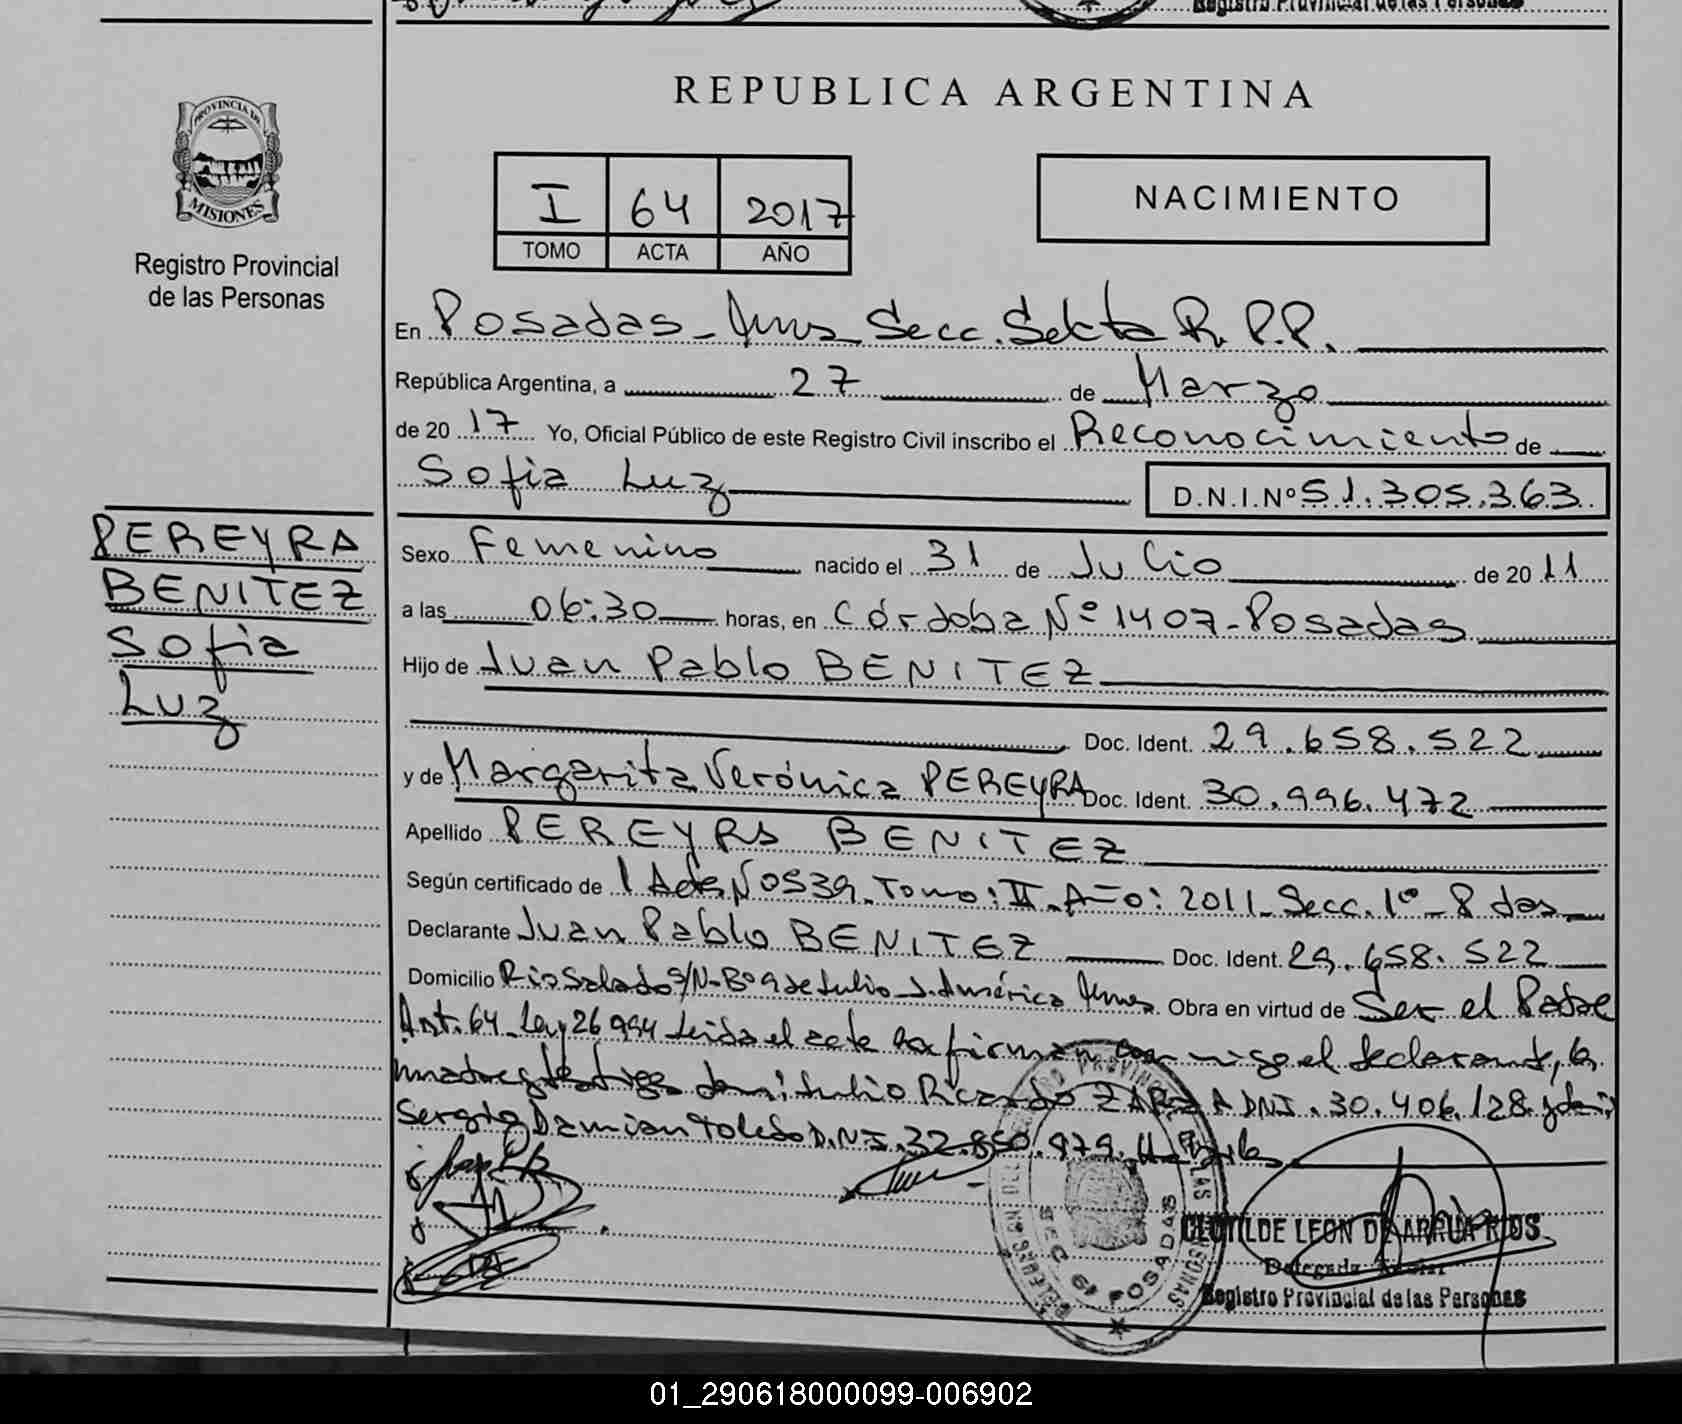 Registro Provincial de las Personas
PROVINCIA DE
MISIONES
Registro Provincial
de las Personas
REPUBLICA ARGENTINA
I 64 2017
TOMO ACTA AÑO
NACIMIENTO
En Posadas - Secc. Sexta R.P.P.
República Argentina, a 27 de Marzo
de 20 17 Yo, Oficial Público de este Registro Civil inscribo el Reconocimiento de
Sofia Luz D.N.I.Nº 51.305.363
PEREYRA
BENITEZ
Sofia
Luz
Sexo Femenino nacido el 31 de Julio de 20 11
a las 06:30 horas, en Córdoba Nº 1407-Posadas
Hijo de Juan Pablo BENITEZ
Doc. Ident. 29.658.522
y de Margarita Verónica PEREYRA Doc. Ident. 30.996.472
Apellido PEREYRA BENITEZ
Según certificado de Tomo: II. Año: 2011_Secc. 1º - Pdas
Declarante Juan Pablo BENITEZ Doc. Ident. 29.658.522
Domicilio Rio Salado S/N-Bº 9 de Julio - Obra en virtud de Ser el Padre
Art. 64 Ley 26994 Leida el acta la firman conmigo el declarante, la
madre y testigos Julio Ricardo ZARZA DNI. 30.406.128 y
Sergio Damian Toledo D.N.I. 32.850.979.
SEC 6ª POSADAS
CLOTILDE LEON DE ARRUA RIOS
Delegada Titular
Registro Provincial de las Personas
01_290618000099-006902